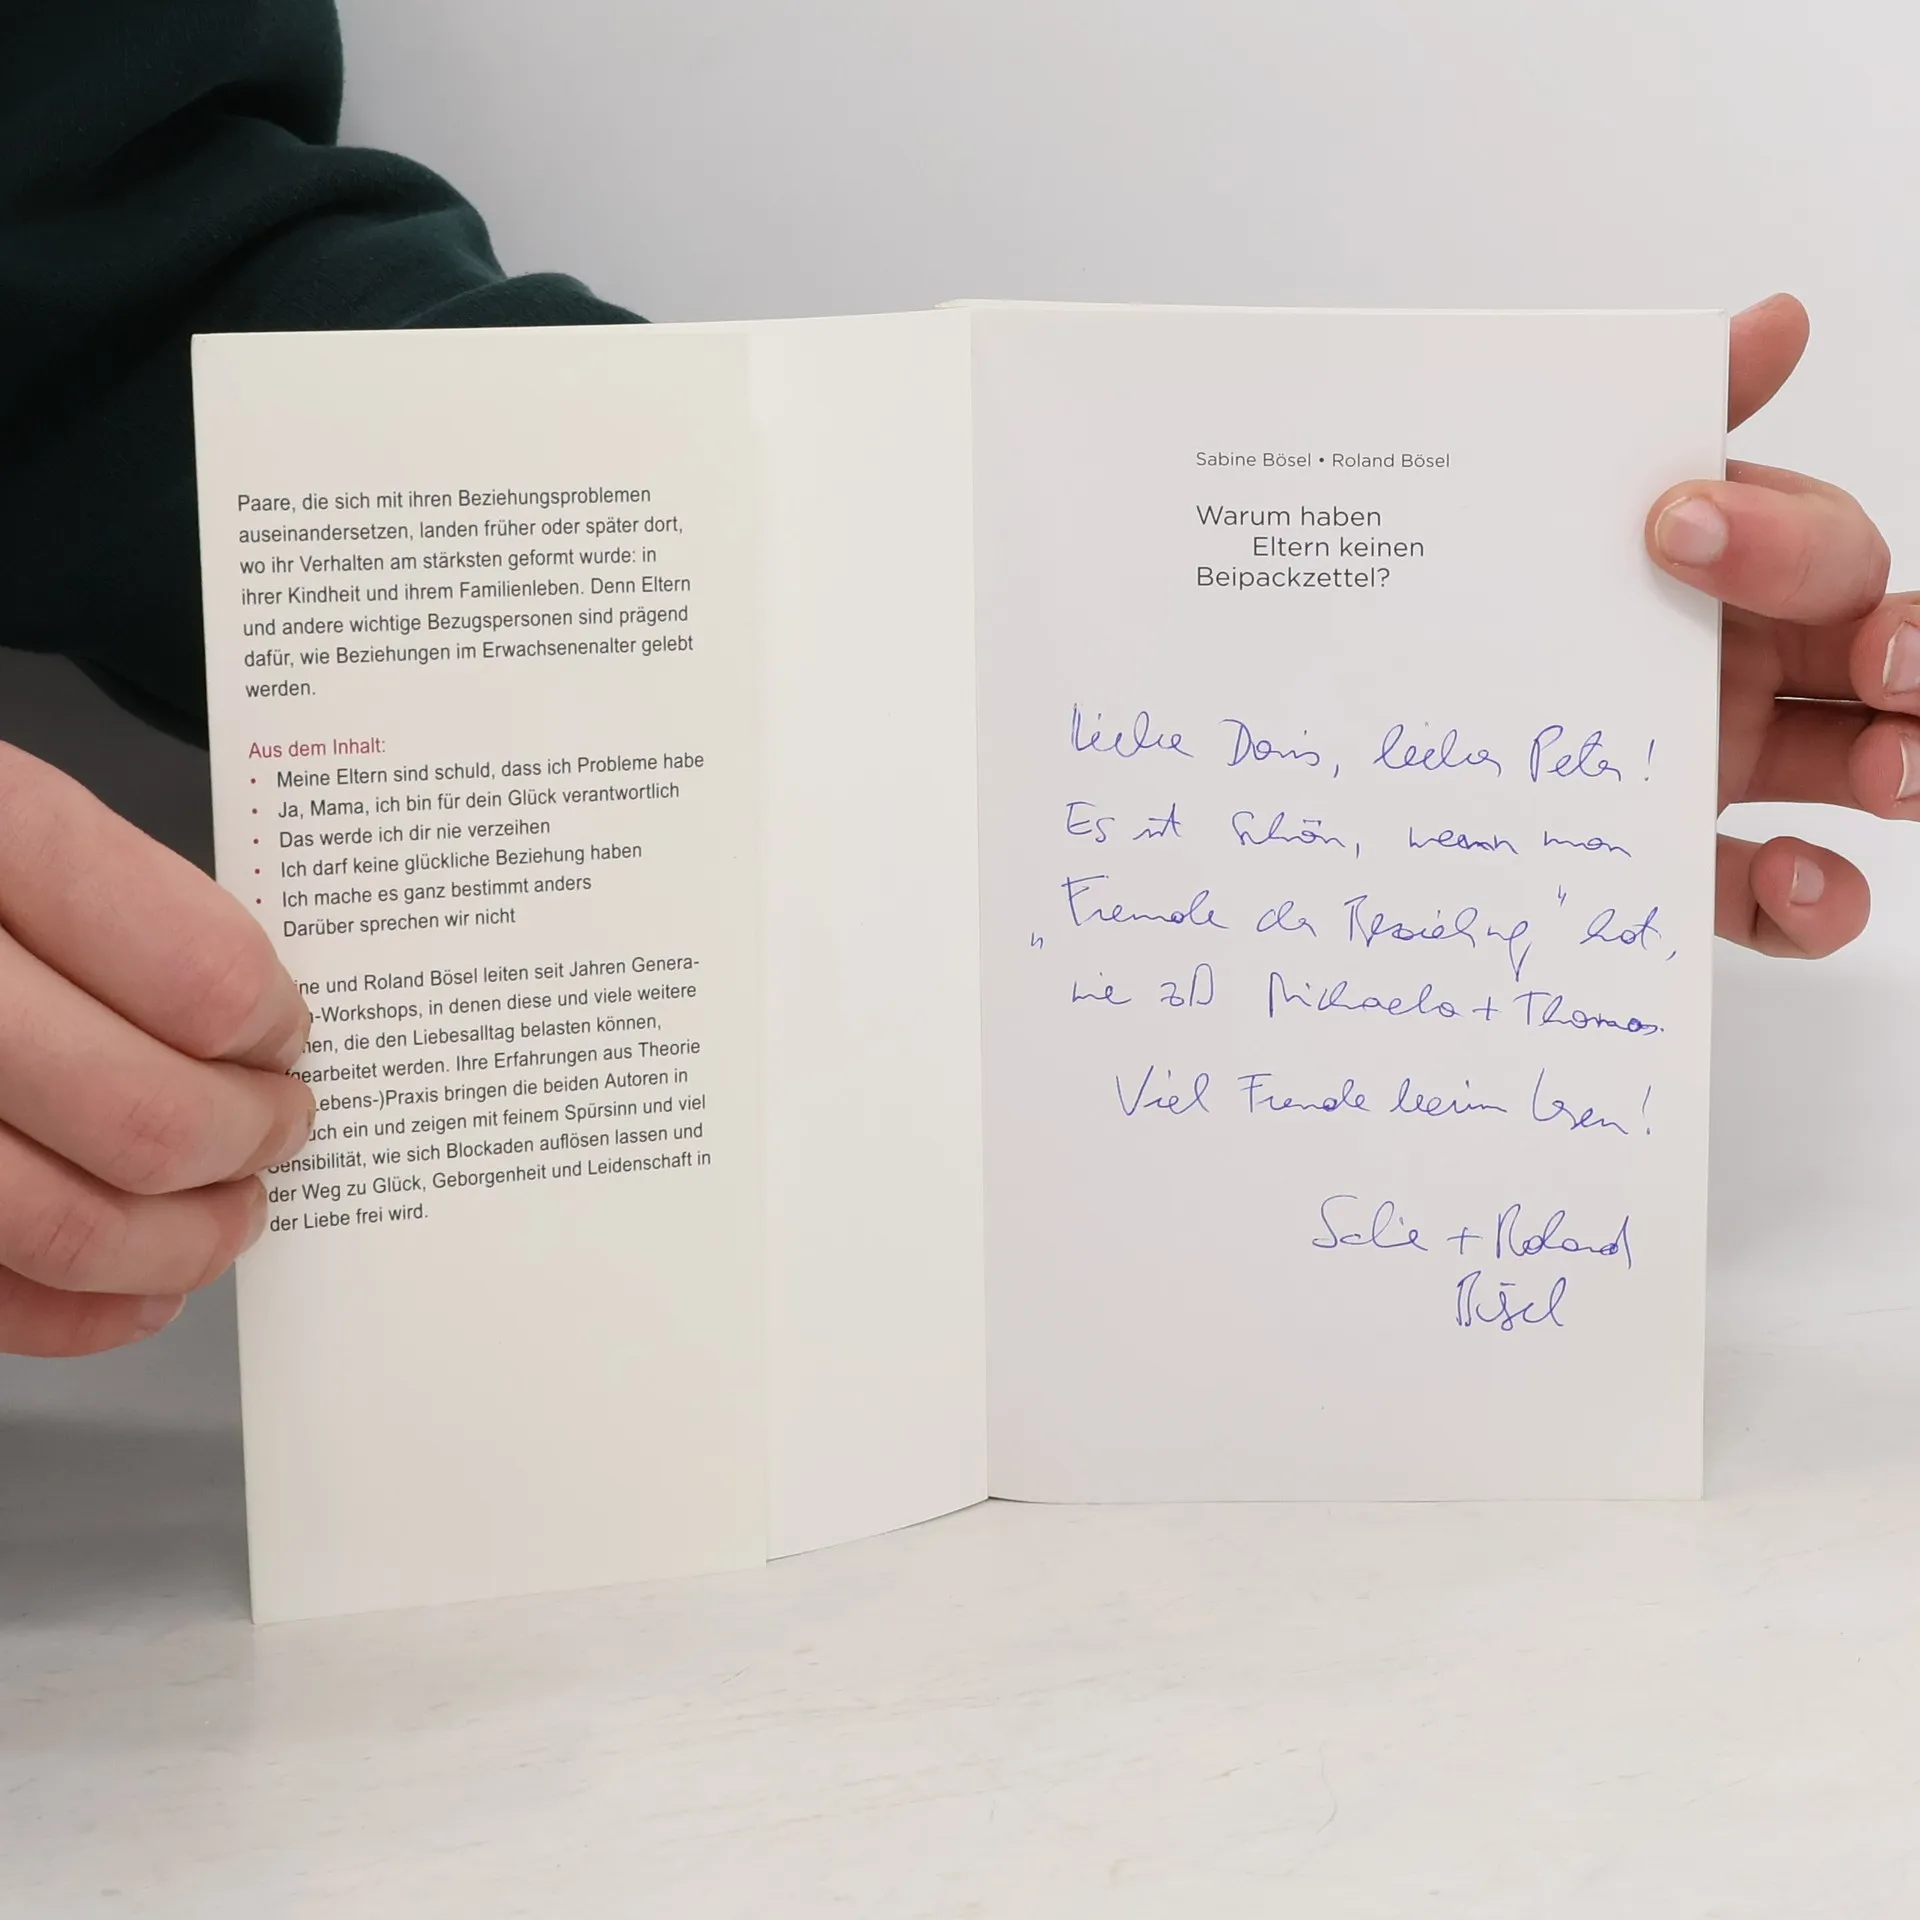 Paare, die sich mit ihren Beziehungsproblemen
auseinandersetzen, landen früher oder später dort,
wo ihr Verhalten am stärksten geformt wurde: in
ihrer Kindheit und ihrem Familienleben. Denn Eltern
und andere wichtige Bezugspersonen sind prägend
dafür, wie Beziehungen im Erwachsenenalter gelebt
werden.
Aus dem Inhalt:
• Meine Eltern sind schuld, dass ich Probleme habe
• Ja, Mama, ich bin für dein Glück verantwortlich
• Das werde ich dir nie verzeihen
• Ich darf keine glückliche Beziehung haben
• Ich mache es ganz bestimmt anders
Darüber sprechen wir nicht
ine und Roland Bösel leiten seit Jahren Genera-
-Workshops, in denen diese und viele weitere
men, die den Liebesalltag belasten können,
fgearbeitet werden. Ihre Erfahrungen aus Theorie
ebens-)Praxis bringen die beiden Autoren in
uch ein und zeigen mit feinem Spürsinn und viel
Sensibilität, wie sich Blockaden auflösen lassen und
der Weg zu Glück, Geborgenheit und Leidenschaft in
der Liebe frei wird.
Sabine Bösel • Roland Bösel
Warum haben
Eltern keinen
Beipackzettel?
Liebe Doris, lieber Peter!
Es ist schön, wenn man
„Freunde der Beziehung" hat,
wie zB Michaela + Thomas.
Viel Freude beim Lesen!
Sabine + Roland
Bösel